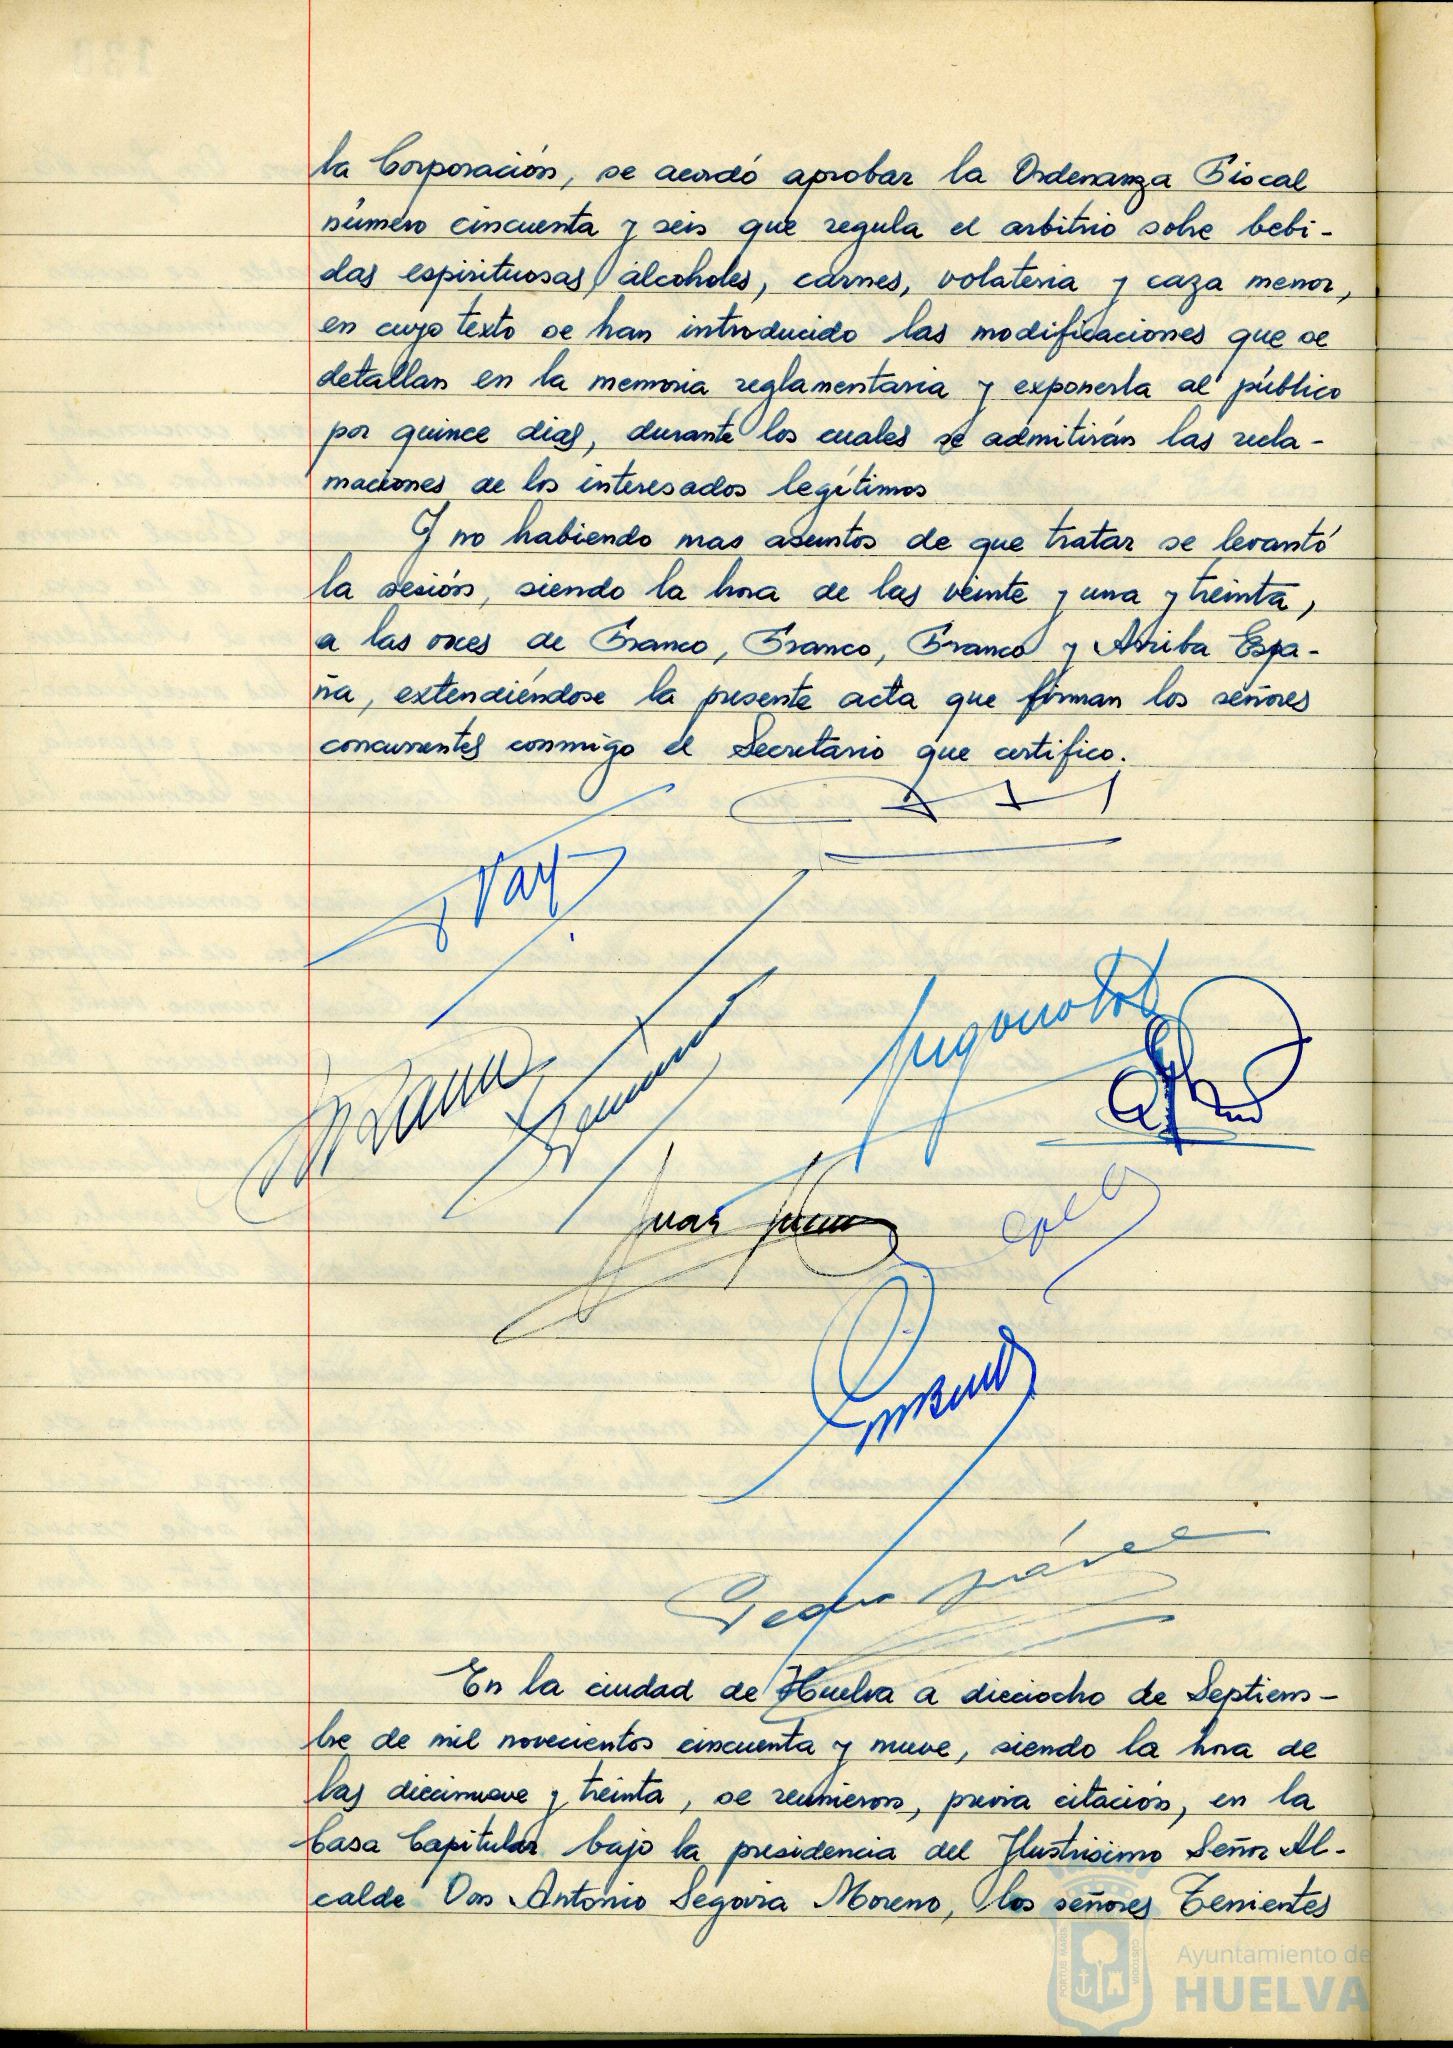 la Corporación, se acordó aprobar la Ordenanza Fiscal
número cincuenta y seis que regula el arbitrio sobre bebi-
das espirituosas, alcoholes, carnes, volateria y caza menor,
en cuyo texto se han introducido las modificaciones que se
detallan en la memoria reglamentaria y exponerla al público
por quince dias, durante los cuales se admitirán las recla-
maciones de los interesados legítimos
Y no habiendo mas asuntos de que tratar se levantó
la sesión, siendo la hora de las veinte y una y treinta,
a las voces de Franco, Franco, Franco y Arriba Espa-
ña, extendiéndose la presente acta que firman los señores
concurrentes conmigo el Secretario que certifico.
Juan
Pedro
En la ciudad de Huelva a dieciocho de Septiem-
bre de mil novecientos cincuenta y nueve, siendo la hora de
las diecinueve y treinta, se reunieron, previa citación, en la
Casa Capitular bajo la presidencia del Ilustrisimo Señor Al-
calde Don Antonio Segovia Moreno, los señores Tenientes
PORTUS MARIS CUSTODIA
Ayuntamiento de
HUELVA